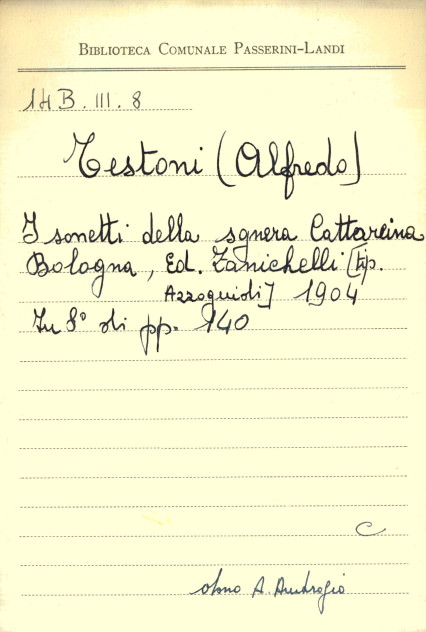 BIBLIOTECA COMUNALE PASSERINI-LANDI
14 B. III. 8
Testoni (Alfredo)
I sonetti della sgnera Cattareina
Bologna, Ed. Zanichelli [tip.
Azzoguidi] 1904
In 8° di pp. 140
C
dono A. Ambrogio